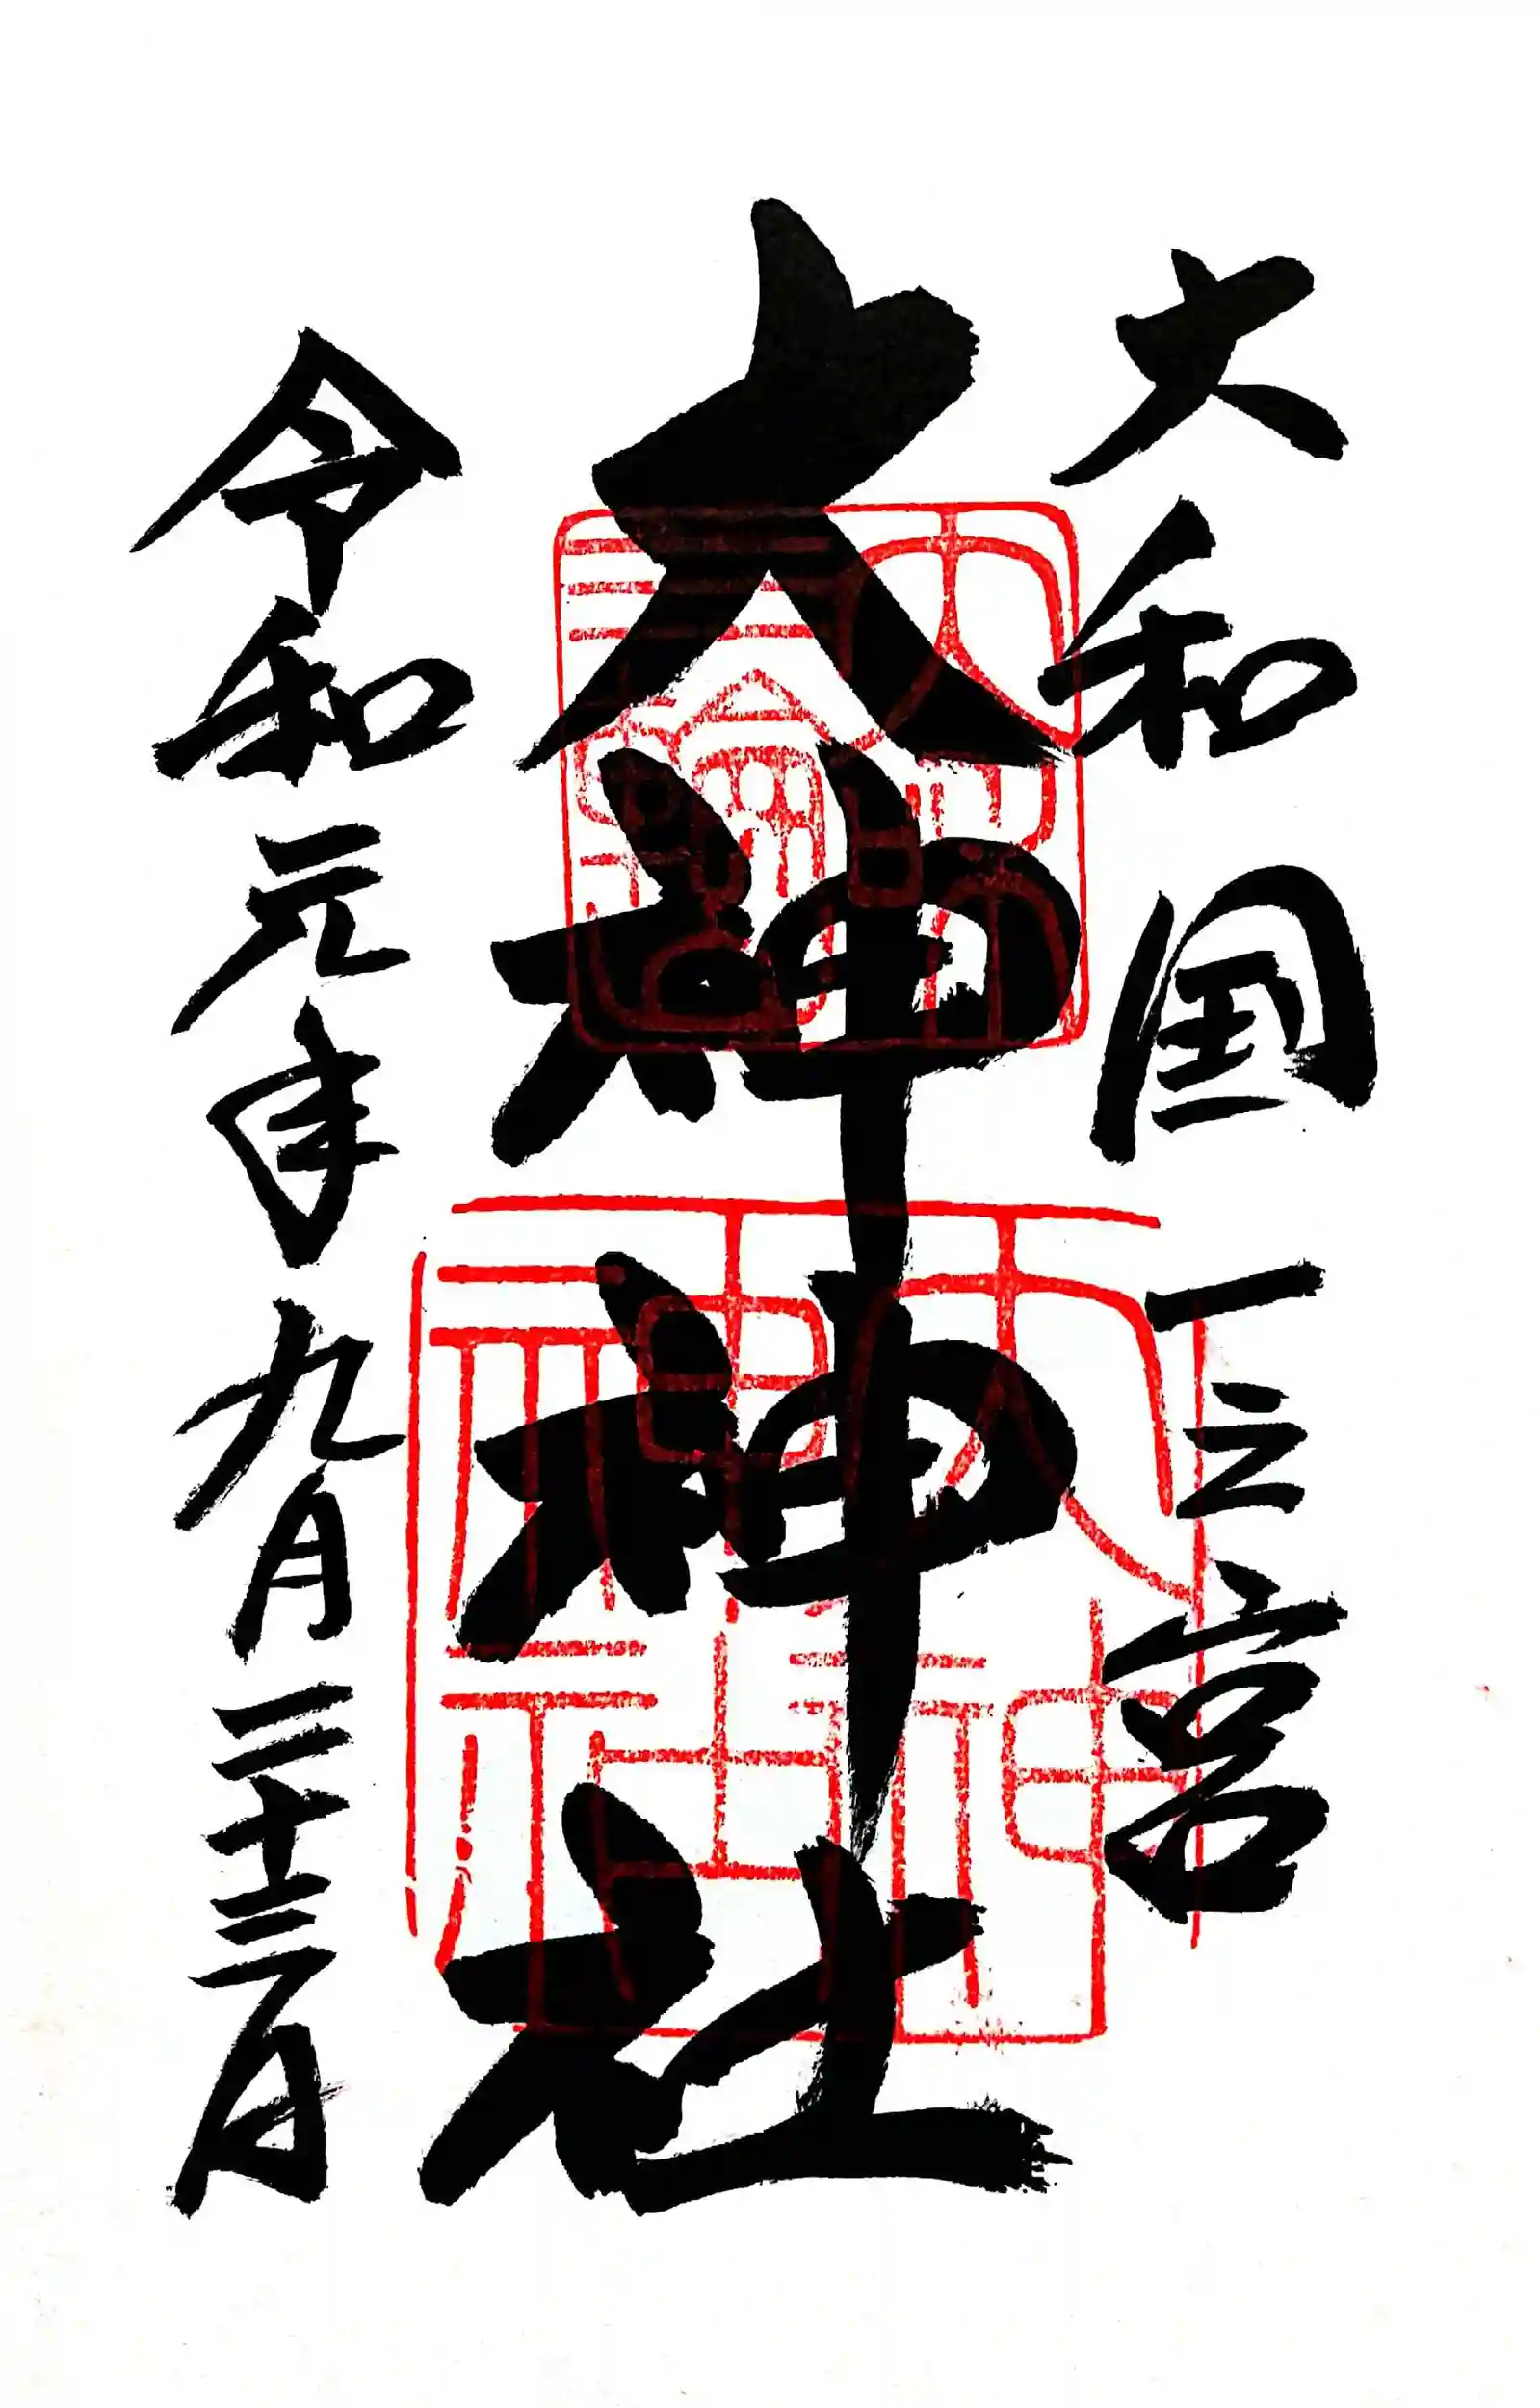 大和国一之宮
大神神社
令和元年九月二十三日
大神神社